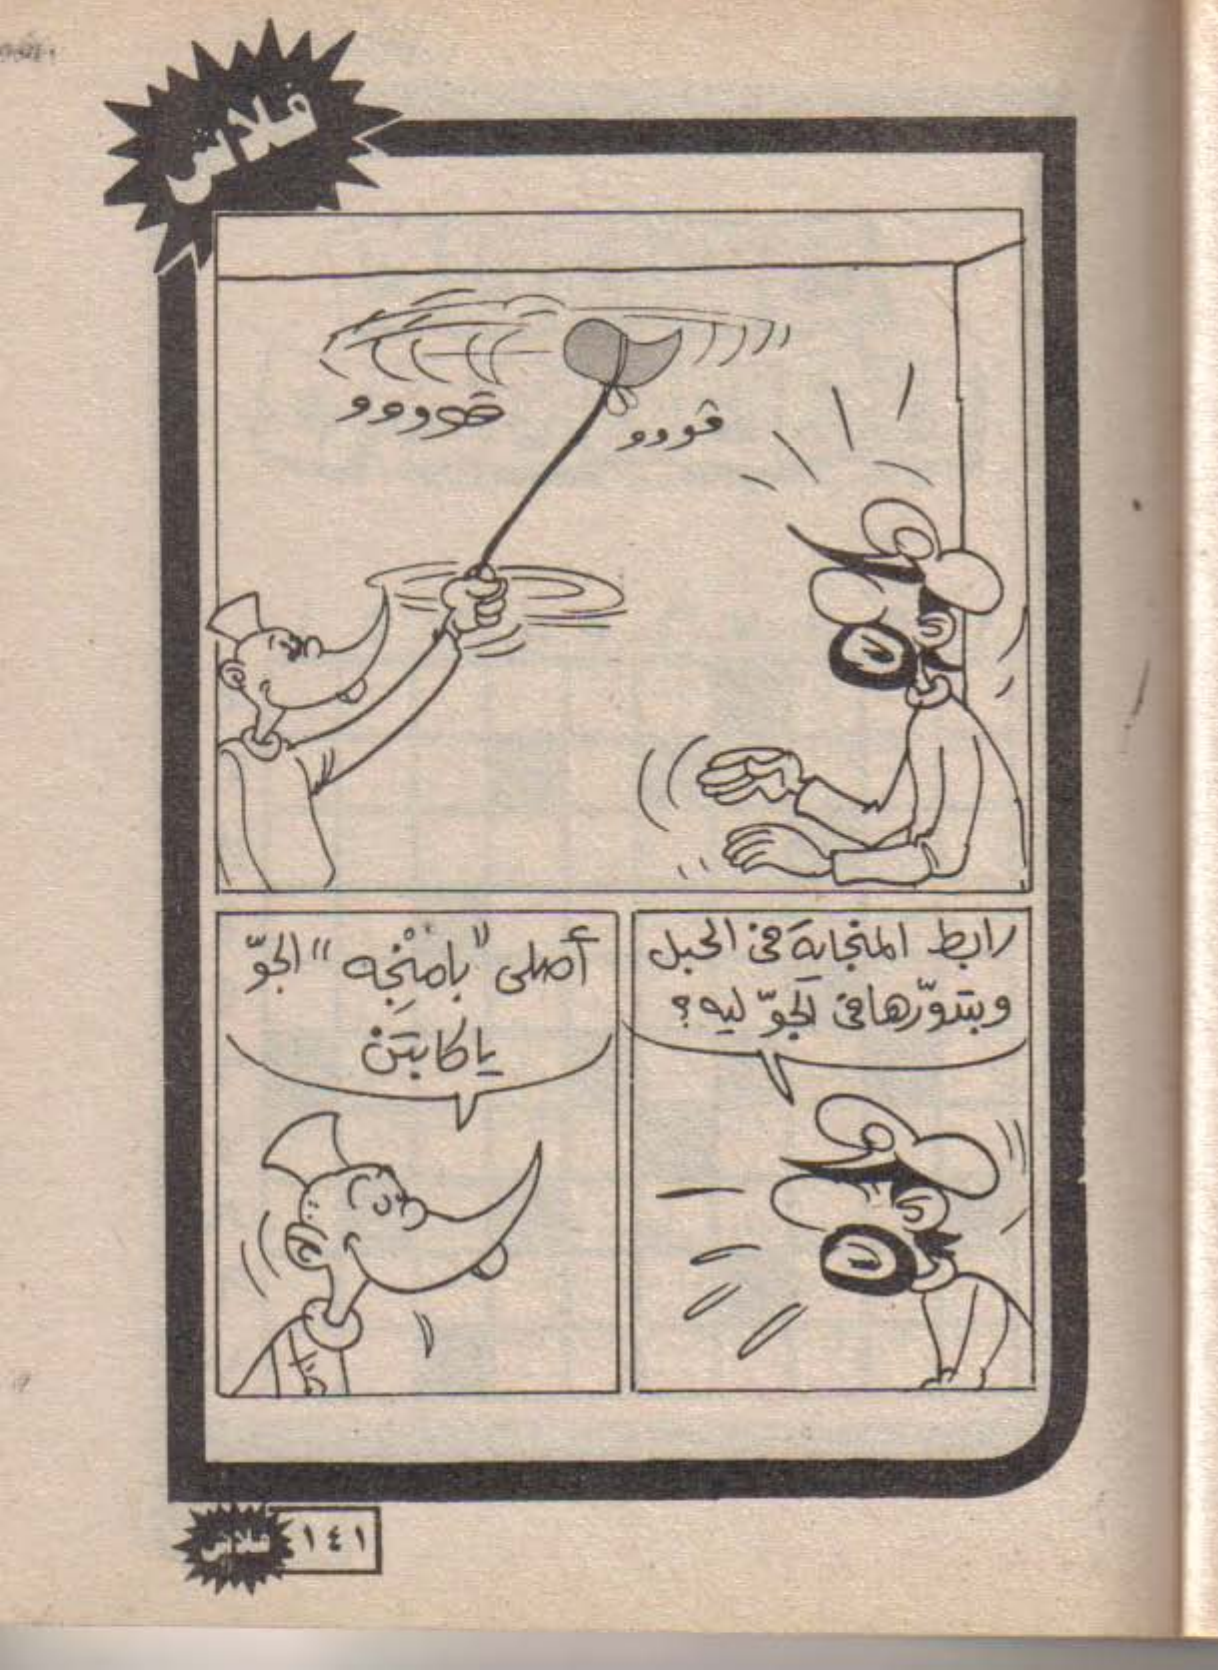 فلاش
ڤوووو
ڤوووو
رابط المنجاية فى الحبل
وبتدوّرها فى الجوّ ليه؟
أصلى "بامَنْجِه" الجوّ
يا كابتن
فلاش
١٤١